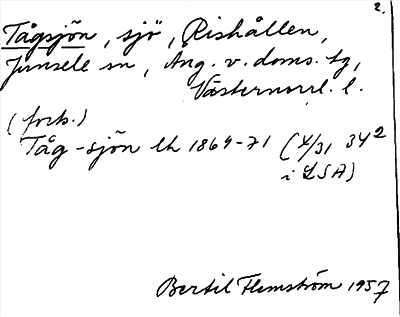 2.
Tågsjön, sjö, Rishållen,
Junsele sn, Ång. v. doms. tg,
Västernorrl. l.
(forts.)
Tåg-sjön lk 1869-71 (X/31 34²
i LSA)
Bertil Flemström 1957